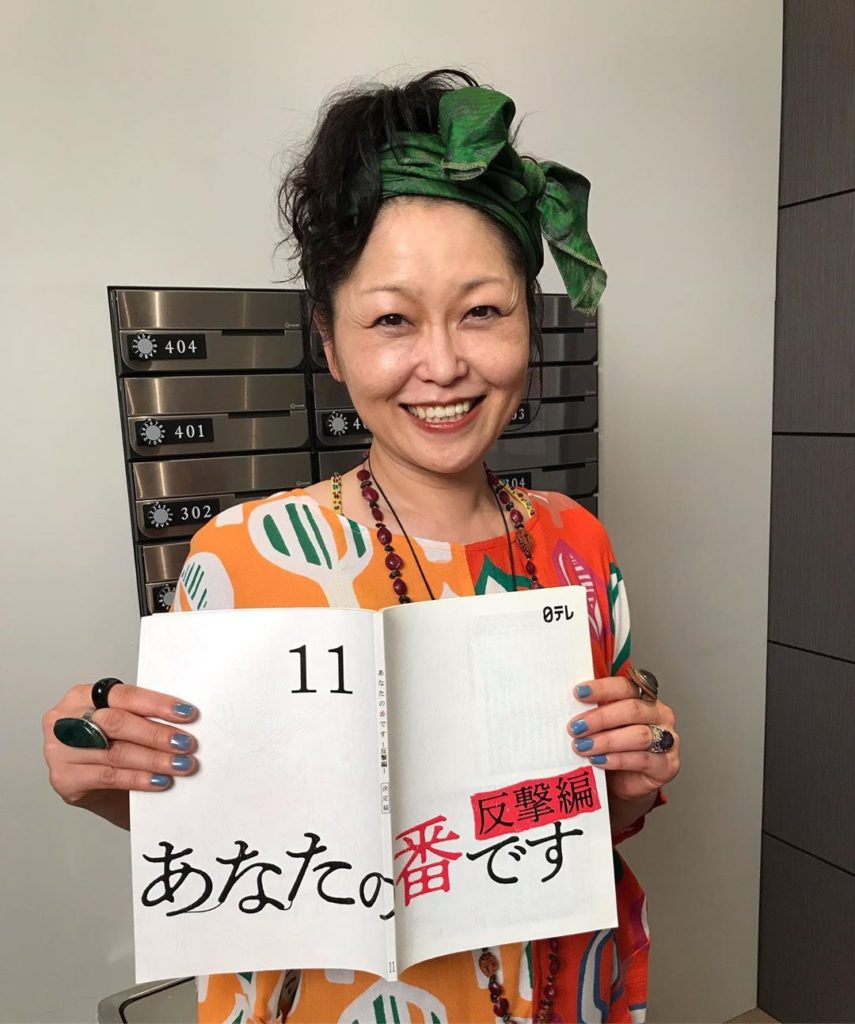 404
401
302
304
11
日テレ
あなたの番です -反撃編- 決定稿
反撃編
あなたの番です
11